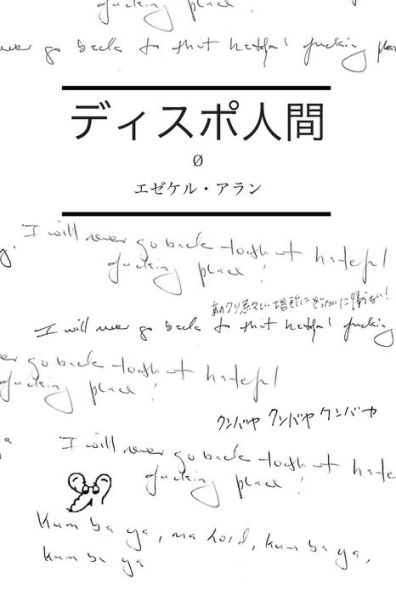 fucking place!
never go back to that hateful fucking place
ディスポ人間
Ø
エゼケル・アラン
y. I will never go back to that hateful
fucking place!
あのクソ忌々しい場所にぜったいに帰らない!
I will never go back to that hateful fucking
never go back to that hateful
fucking place!
クンバヤ クンバヤ クンバヤ
a I will never go back to that hate
fucking place!
Kum ba ya, ma lord, kum ba ya,
kum ba ya